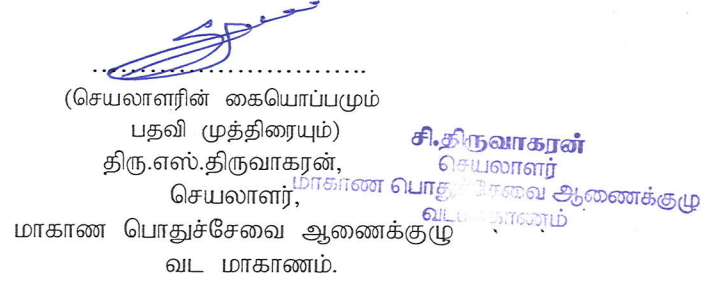 .................................
(செயலாளரின் கையொப்பமும்
பதவி முத்திரையும்)
திரு.எஸ்.திருவாகரன்,
செயலாளர்,
மாகாண பொதுச்சேவை ஆணைக்குழு
வட மாகாணம்.
சி.திருவாகரன்
செயலாளர்
மாகாண பொதுச்சேவை ஆணைக்குழு
வடமாகாணம்